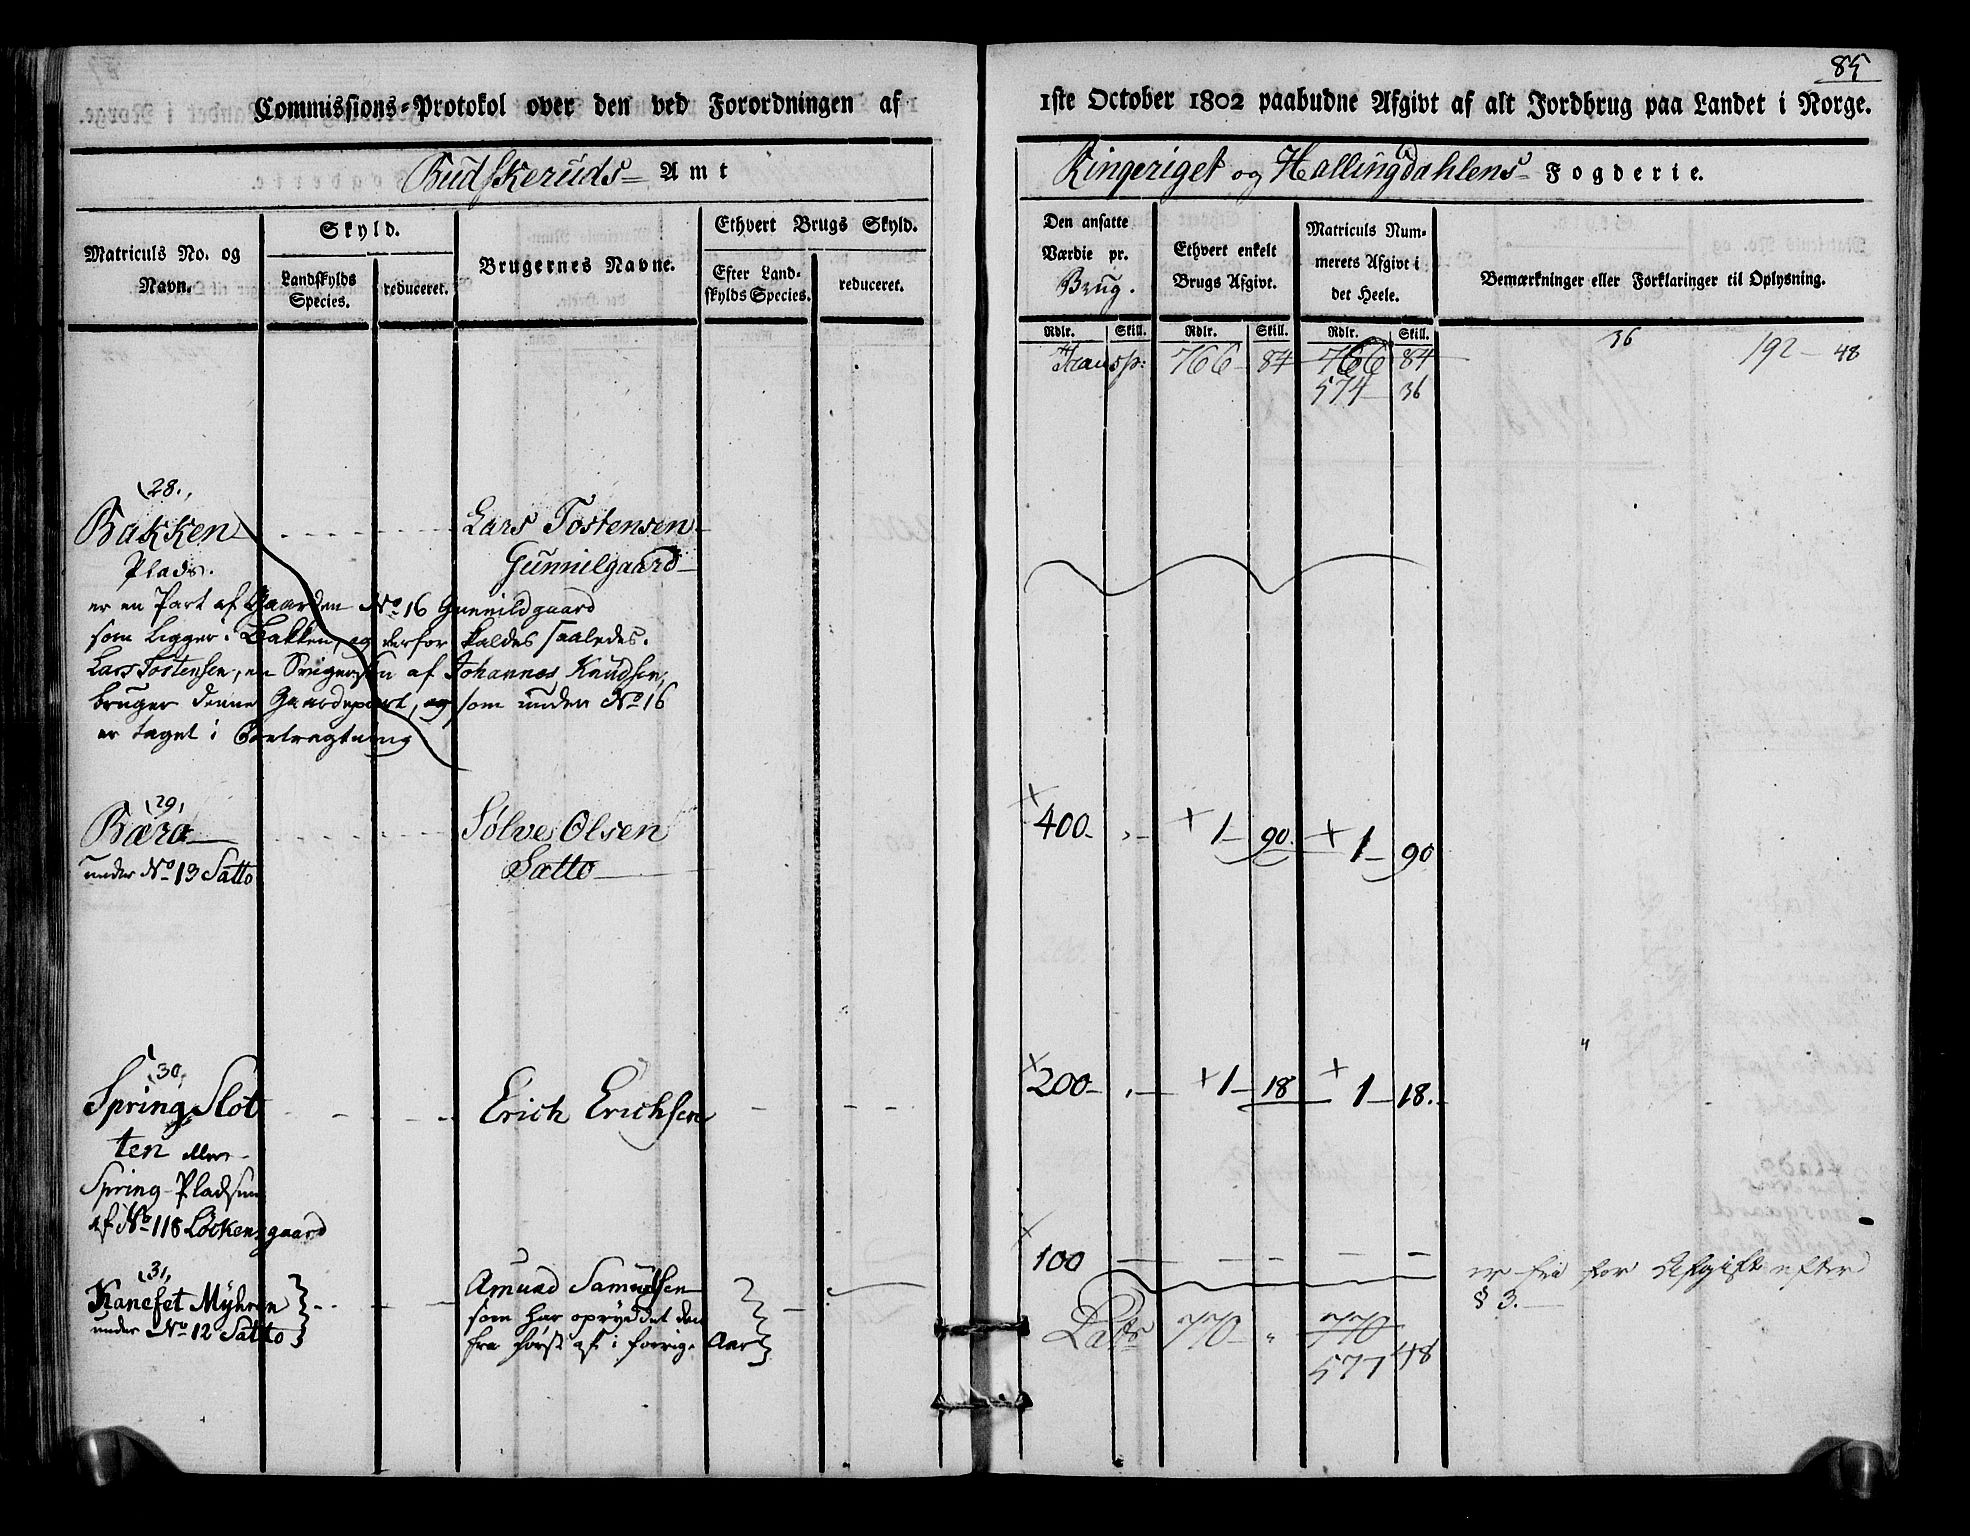 85
Commissions=Protokol over den ved Forordningen af 1ste October 1802 paabudne Afgivt af alt Jordbrug paa Landet i Norge.
Budskeruds Amt
Ringeriget og Hallingdahlens Fogderie.
Matriculs No. og Navn.
Skyld.
Landskylds Species.
reduceret.
Brugernes Navne.
Ethvert Brugs Skyld.
Efter Landskylds Species.
reduceret.
Den ansatte Værdie pr. Brug.
Ethvert enkelt Brugs Afgivt.
Matriculs Nummerets Afgivt i det Heele.
Bemærkninger eller Forklaringer til Oplysning.
Rdlr. Skill. Rdlr. Skill. Rdlr. Skill.
Transp: 766 84 766 84 36 192 48
574 36
28.
Bakken Lars Tostensen
Plads. Gunnilgaard
er en Part af Gaarden No 16 Gunnildgaard
som ligger i Bakken, og derfor kaldes saaledes.
Lars Tostensen, en Svigersøn af Johannes Knudsen,
bruger denne Gaardepart, og som under No 16
er taget i Betragtning
29,
Bæra Sølve Olsen 400 1 90. 1 90
under No 13 Satto Satto
30,
Spring Slot Erich Erichsen 200 1 18 1 18.
ten eller
Spring-Pladsen
af No 118 Löckensgaard
31,
Kanefet Myhren Amund Samuelsen 100 er fri for Afgift efter
under No 12 Satto som har opryddet den § 3.
fra først af i forrige Aar
Lats 770 " 770
577 48